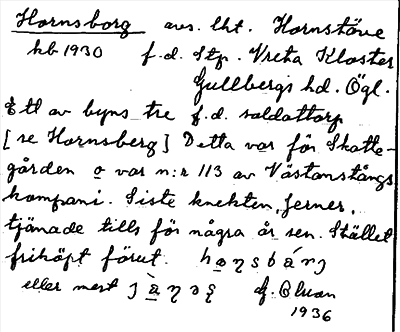 Hornsborg avs. lht. Hornstöve
hb 1930 f.d. Stp. Vreta Kloster
Gullbergs hd. Ögl.
Ett av byns tre f.d. soldattorp
[se Hornsberg] Detta var för Skatte-
gården o var n:r 113 av Västanstångs
kompani. Siste knekten, Jerner,
tjänade tills för några år sen. Stället
friköpt förut.
eller mest
1936